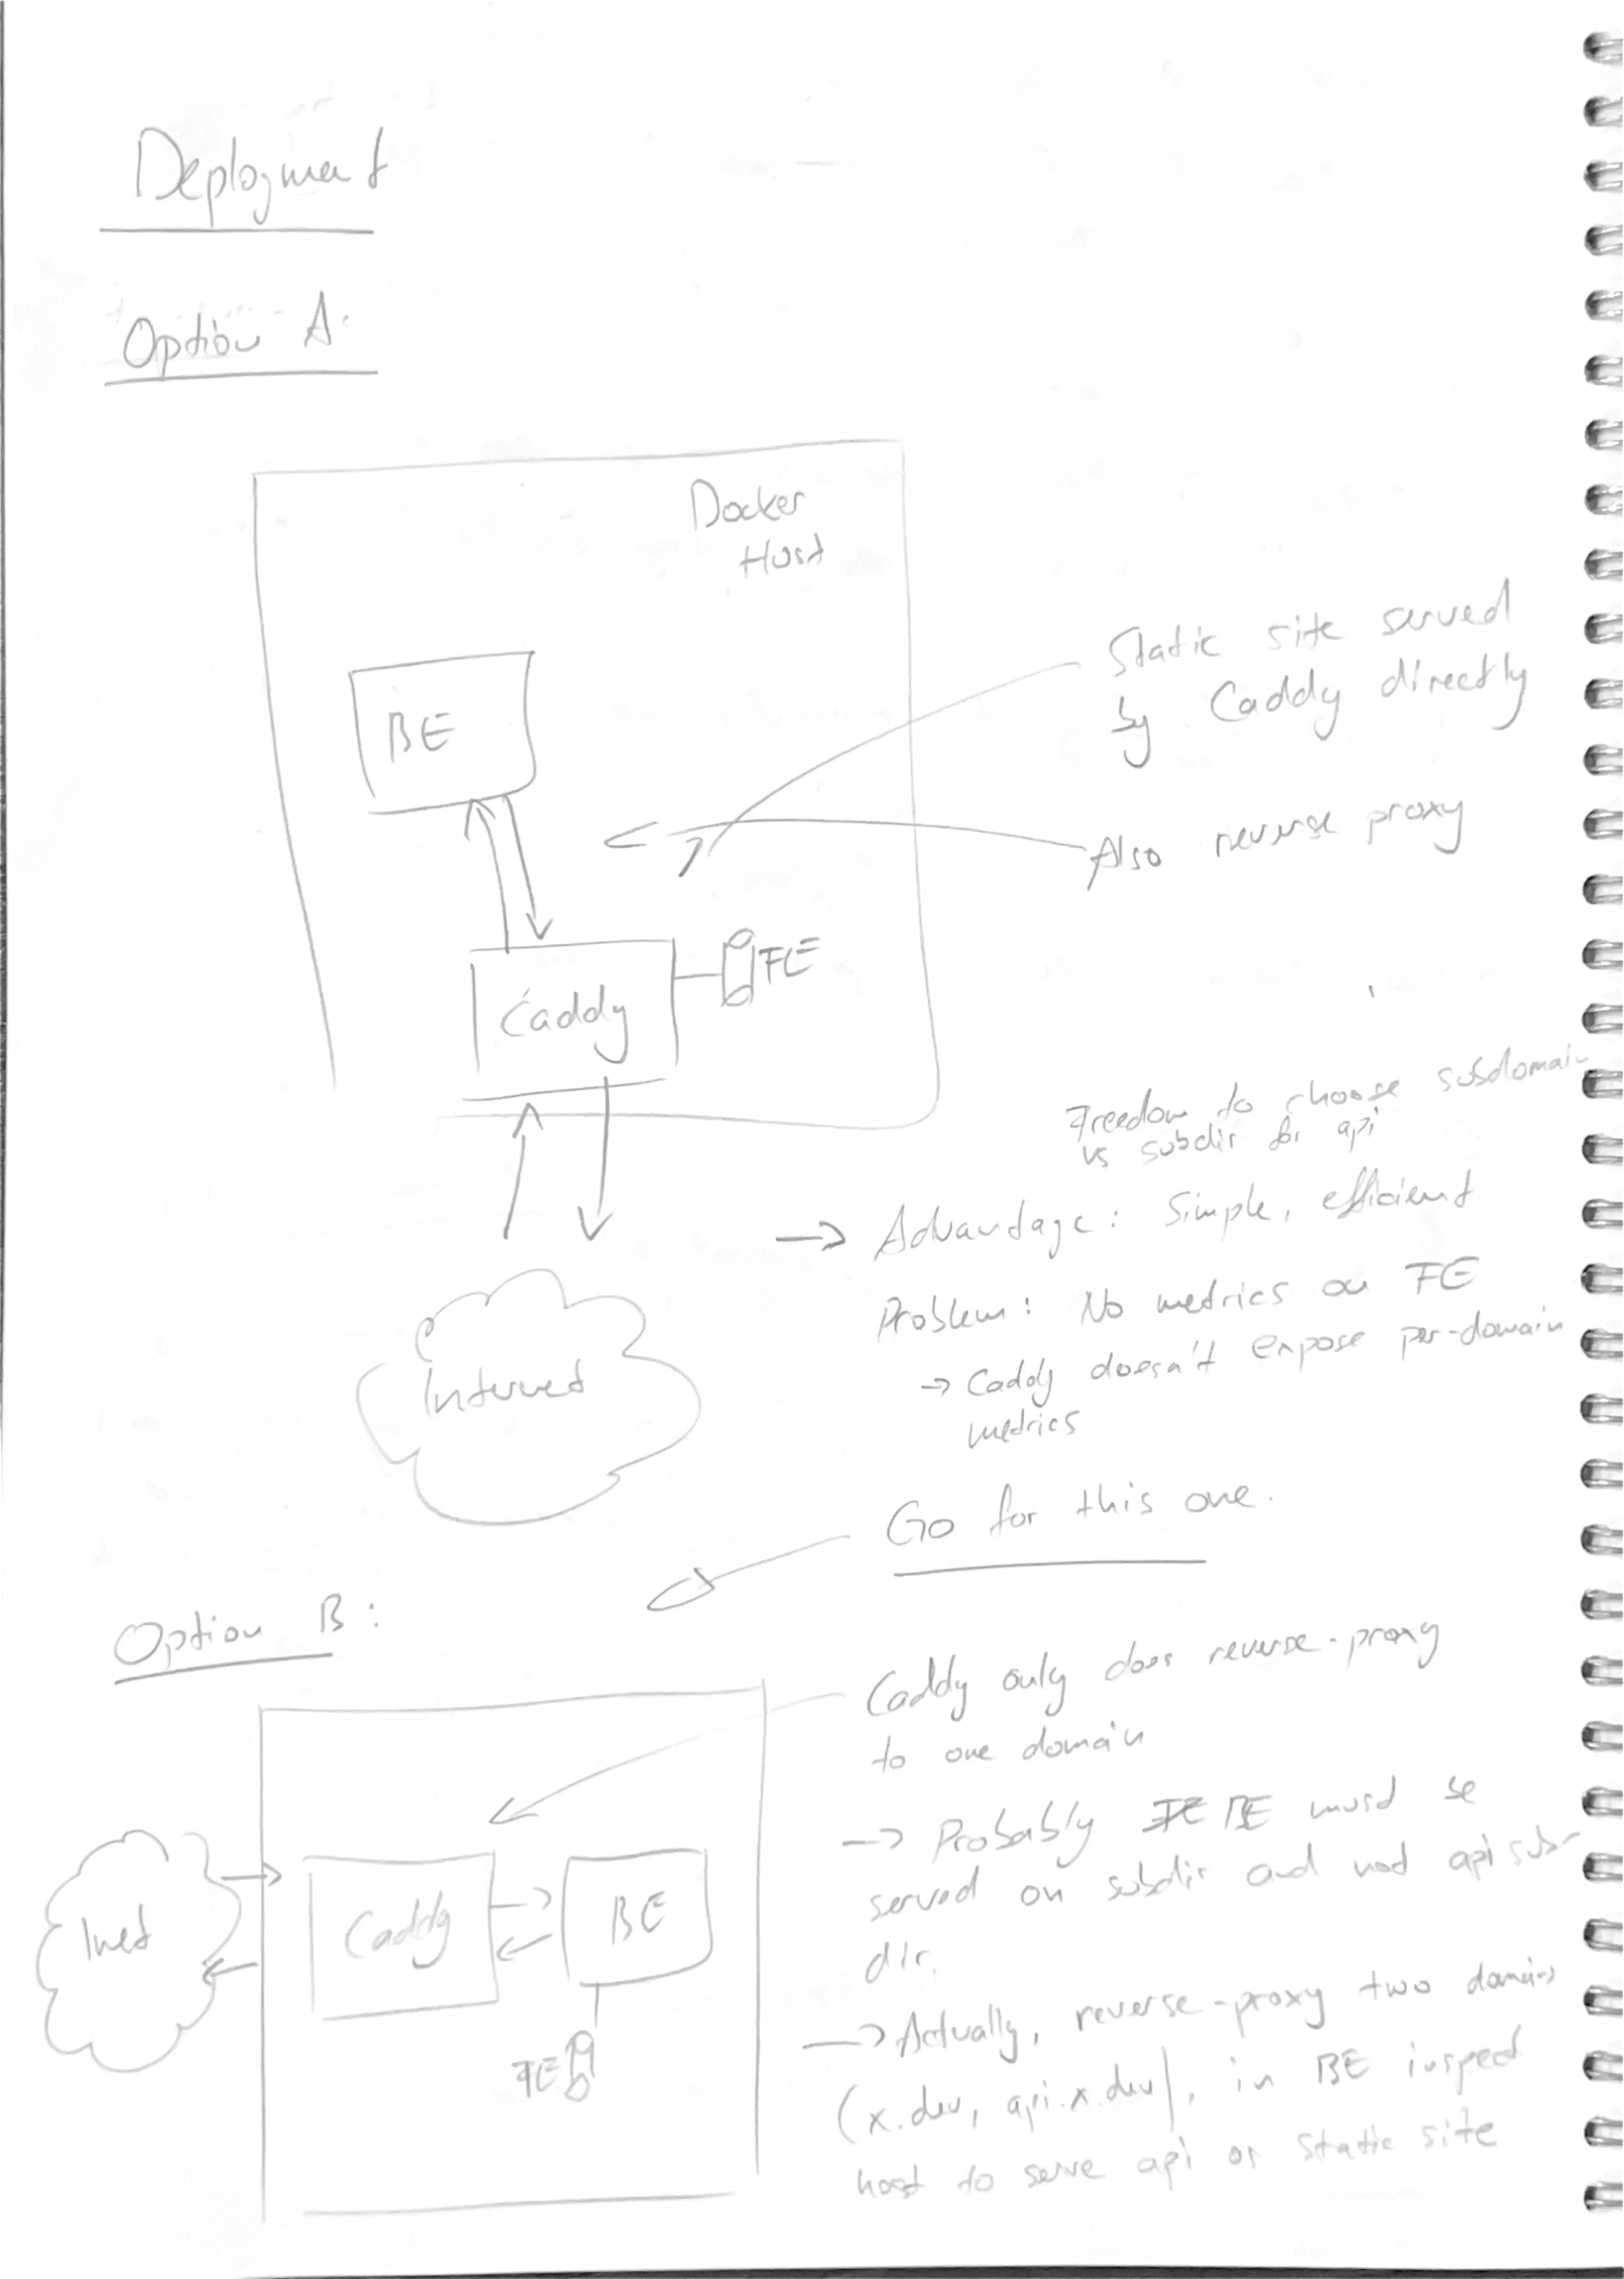 Deployment
Option A:
Docker
Host
BE
Static site served
by Caddy directly
Also reverse proxy
Caddy
FE
Freedom to choose subdomain
vs subdir for api
→ Advantage: Simple, efficient
Problem: No metrics on FE
→ Caddy doesn't expose per-domain
metrics
Internet
Go for this one.
Option B:
Caddy only does reverse-proxy
to one domain
→ Probably BE must be
served on subdir and not api sub-
dir.
Inet
Caddy
BE
FE
→ Actually, reverse-proxy two domains
(x.dev, api.x.dev), in BE inspect
host to serve api or static site